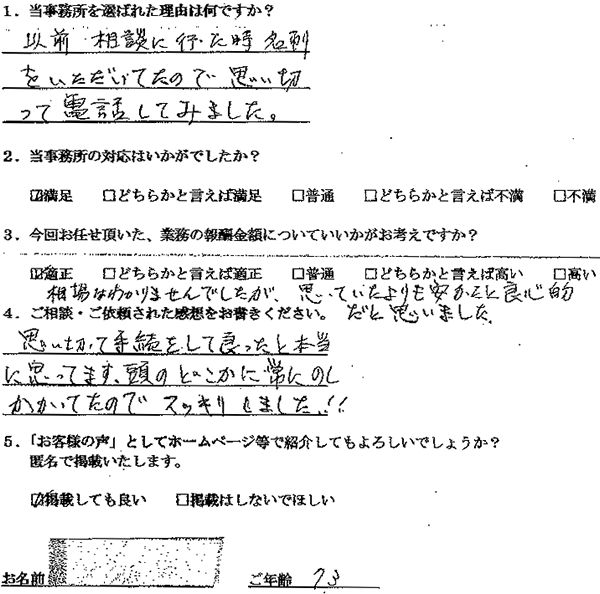 1．当事務所を選ばれた理由は何ですか？
以前 相談に行った時 名刺
をいただいてたので 思い切
って電話してみました。
2．当事務所の対応はいかがでしたか？
☑満足 □どちらかと言えば満足 □普通 □どちらかと言えば不満 □不満
3．今回お任せ頂いた、業務の報酬金額についていいかがお考えですか？
☑適正 □どちらかと言えば適正 □普通 □どちらかと言えば高い □高い
相場はわかりませんでしたが、思っていたよりも安かったし良心的
だと思いました
4．ご相談・ご依頼された感想をお書きください。
思い切って手続をして良ったと本当
に思ってます、頭のどこかに常にのし
かかいてたので スッキリしました!!
5．「お客様の声」としてホームページ等で紹介してもよろしいでしょうか？
匿名で掲載いたします。
☑掲載しても良い □掲載はしないでほしい
お名前
ご年齢 73